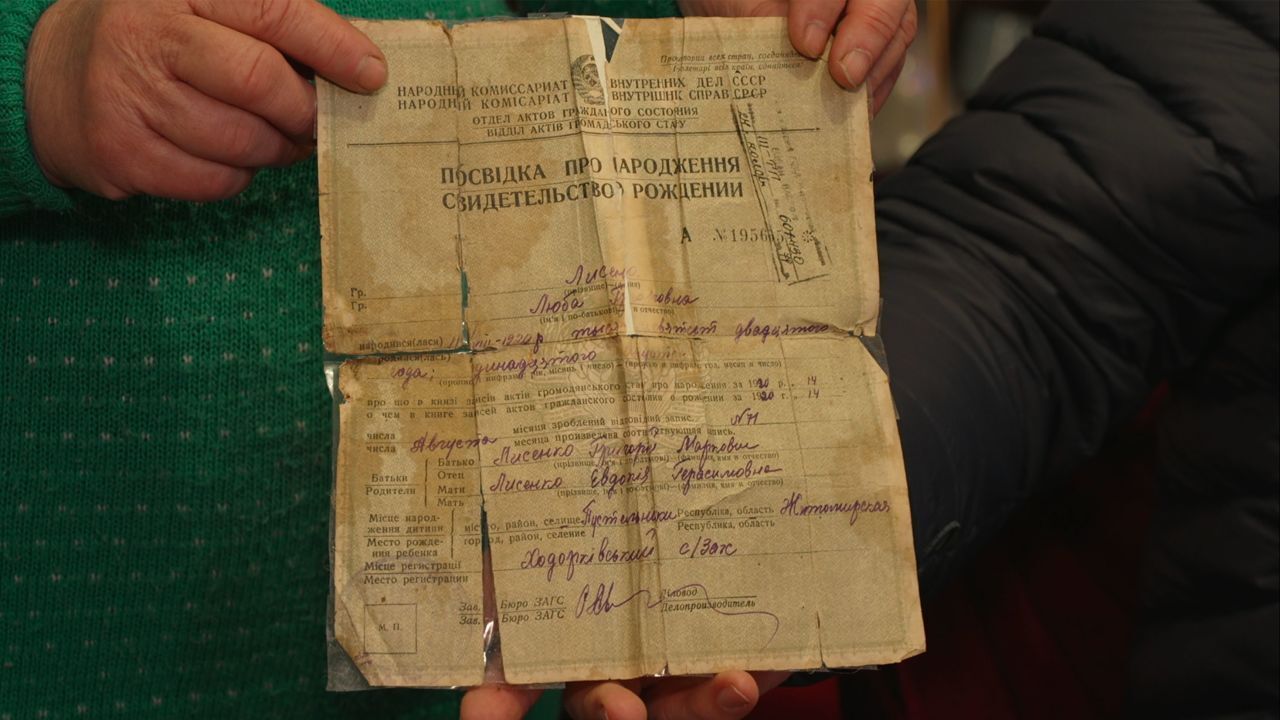 Пролетарии всех стран, соединяйтесь
Пролетарі всіх країн, єднайтеся!
НАРОДНЫЙ КОМИССАРИАТ ВНУТРЕННИХ ДЕЛ СССР
НАРОДНІЙ КОМІСАРІАТ ВНУТРІШНІХ СПРАВ СРСР
ОТДЕЛ АКТОВ ГРАЖДАНСКОГО СОСТОЯНИЯ
ВІДДІЛ АКТІВ ГРОМАДСЬКОГО СТАНУ
ПОСВІДКА ПРО НАРОДЖЕННЯ
СВИДЕТЕЛЬСТВО РОЖДЕНИИ
А №1956
Гр. Лисенко
Гр. (прізвище)—(фамилия)
Люба Григовна
(ім'я і по-батькові) и отчество)
народився(лася) 11 VIII-1920 р двадцятого
родился(лась)
года; одинадцятого
про що в книзі записів актів громодянського стану про народження за 1920 р. „ 14
о чем в книге записей актов гражданского состояния о рождении за 1920 г. „ 14
числа Августа місяця зроблений відповідний запис. №71
числа месяца произведена соответствующая запись.
Батьки Батько Лисенко Григорій Маркович
Родители Отец (прізвище, ім'я і по-батькові)—(фамилия, имя и отчество)
Мати Лисенко Евдокія Герасимовна
Мать (прізвище, ім'я і по-батькові)—(фамилия, имя и отчество)
Місце народження дитини місто, район, селище Пустельники Республіка, область Житомирская
Место рождения ребенка город, район, селение Республика, область
Місце регистрації Ходорківський с/Заг
Место регистрации
Зав. Бюро ЗАГС Діловод
Зав. Бюро ЗАГС Делопроизводитель
М. П.